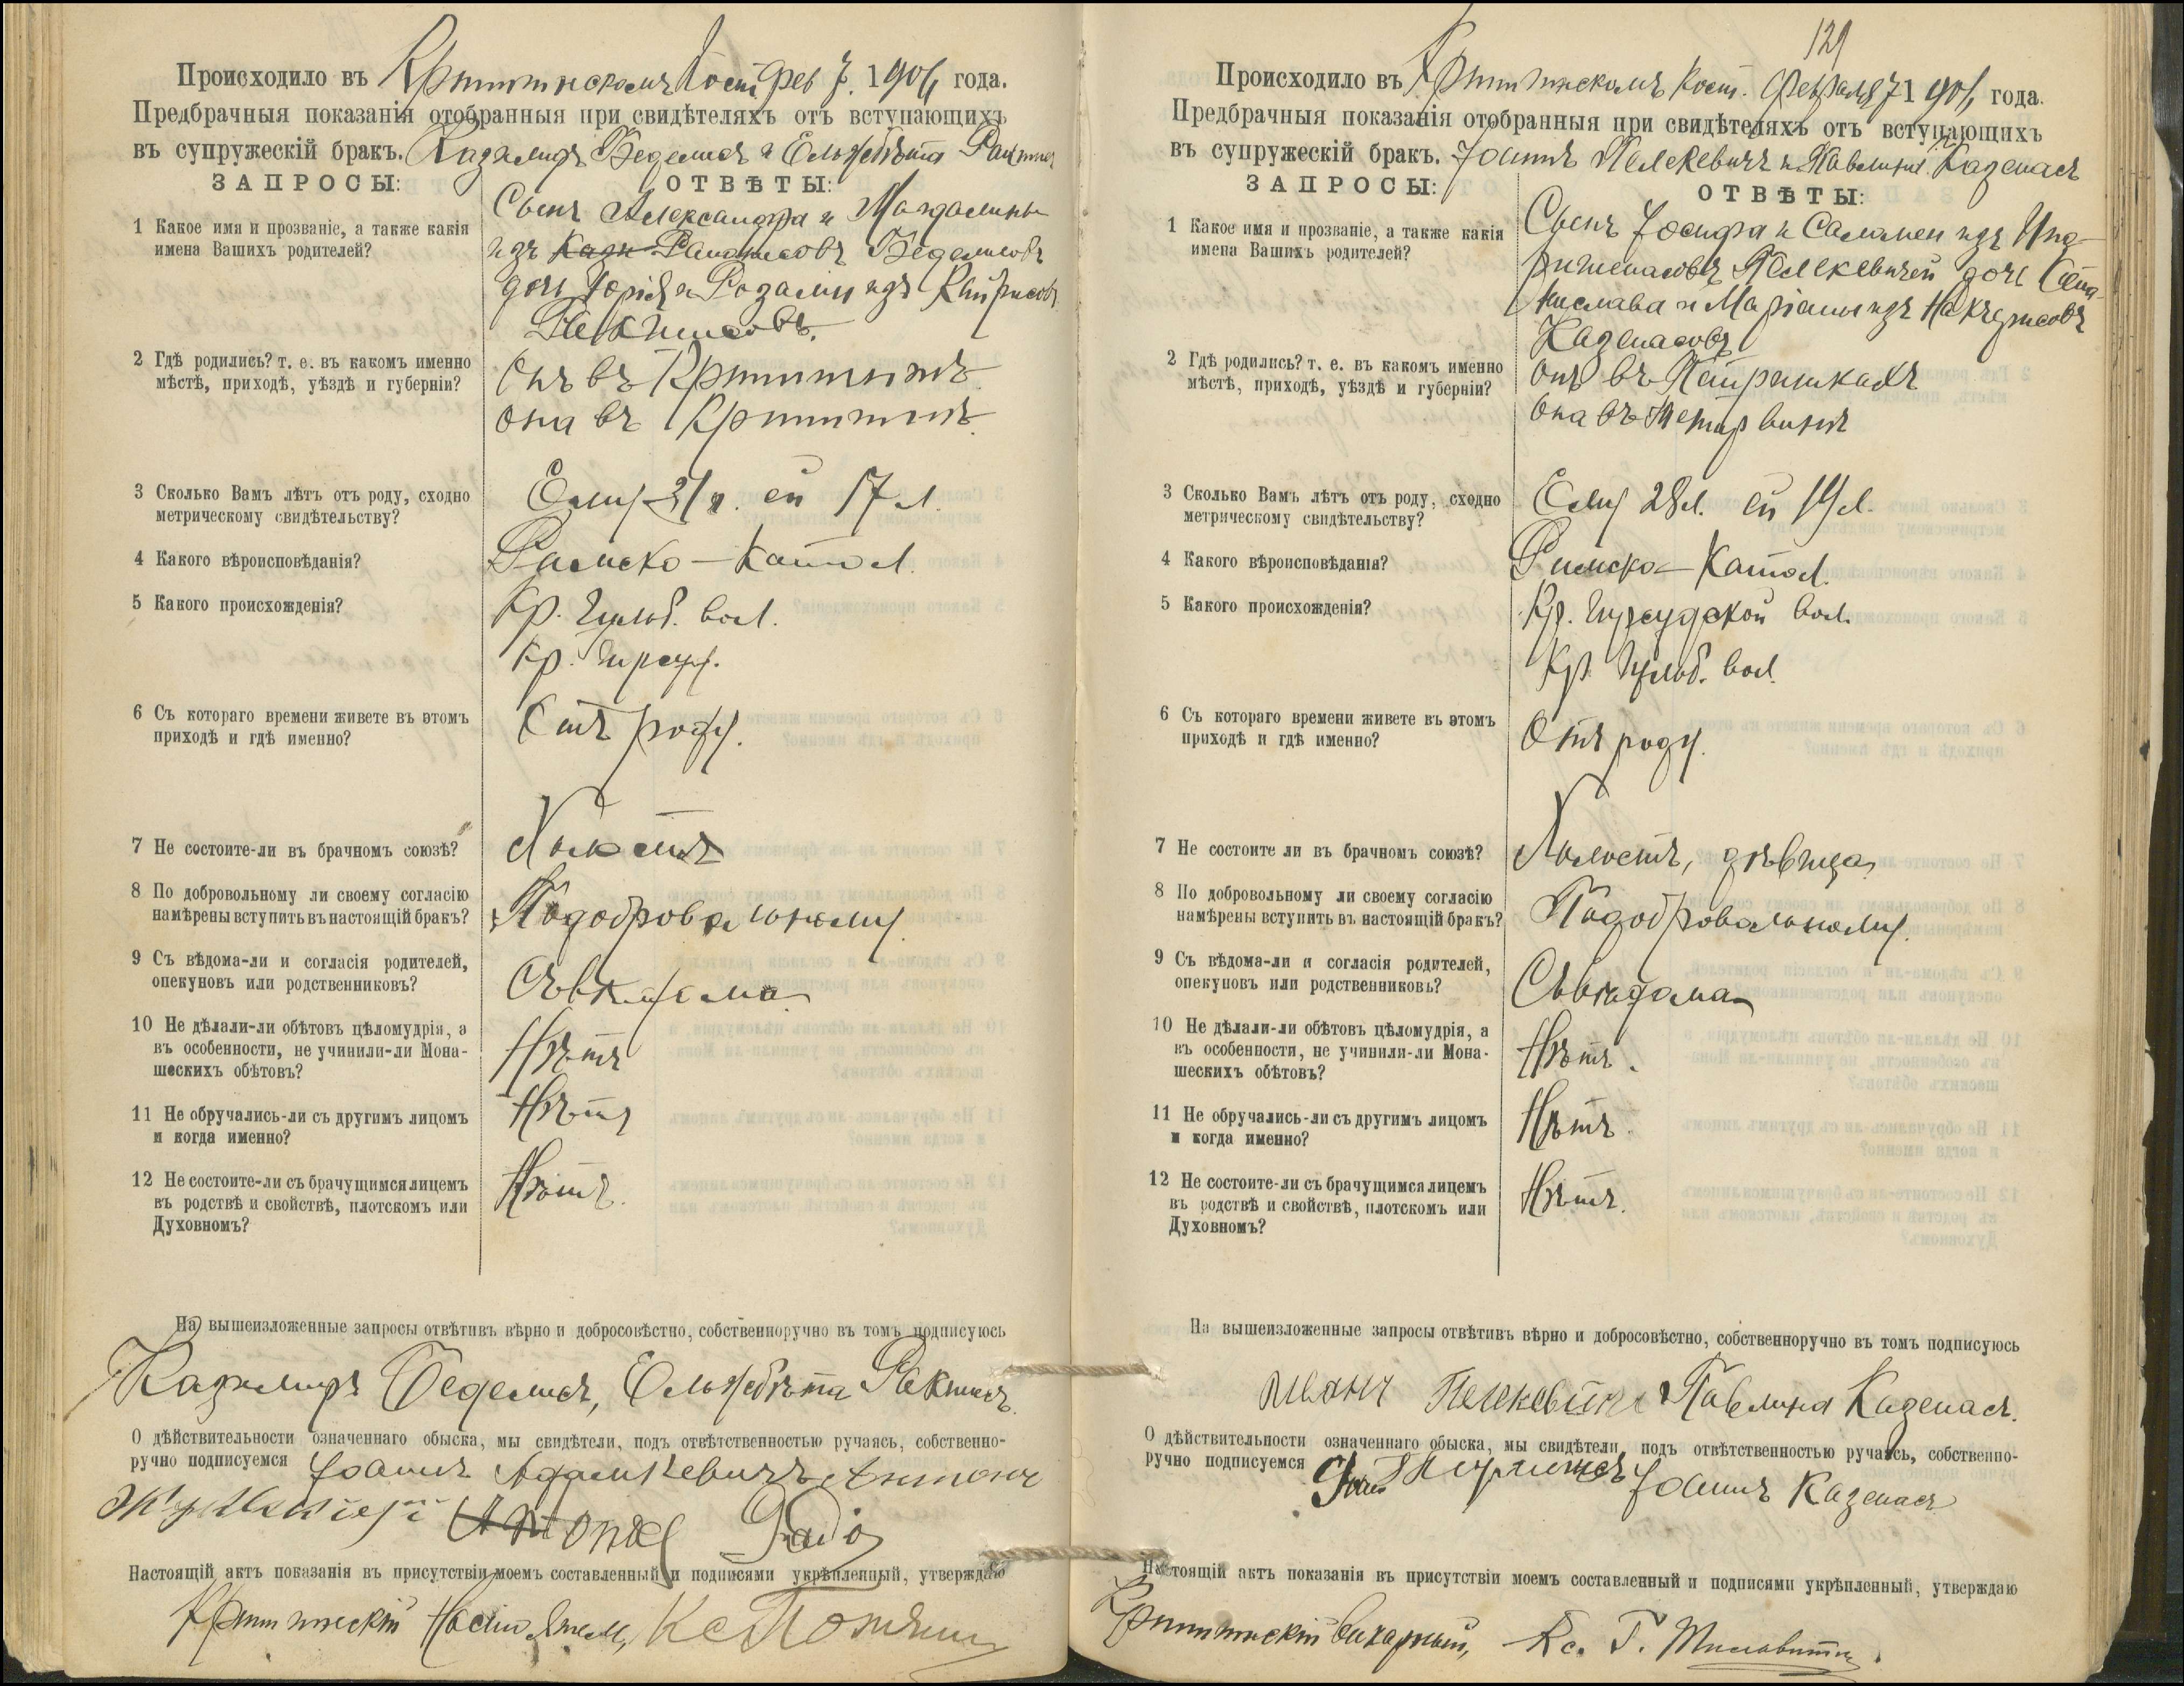 Происходило въ Криттинскомъ Кост Фев 7. 1904 года.
Предбрачныя показанія отобранныя при свидѣтеляхъ отъ вступающихъ
въ супружескій бракъ. Казимиръ Бедемсъ и Ельжбѣта
ЗАПРОСЫ: ОТВѢТЫ:
1 Какое имя и прозваніе, а также какія
имена Вашихъ родителей?
Сынъ Александра и Магдалины
изъ
дочь Юрія и Розаліи изъ
2 Гдѣ родились? т. е. въ какомъ именно
мѣстѣ, приходѣ, уѣздѣ и губерніи?
Онъ въ
она въ
3 Сколько Вамъ лѣтъ отъ роду, сходно
метрическому свидѣтельству?
Ему 21 г. ей 17 л.
4 Какого вѣроисповѣданія?
Римско-Катол.
5 Какого происхожденія?
Кр. вол.
Кр.
6 Съ котораго времени живете въ этомъ
приходѣ и гдѣ именно?
Отъ роду.
7 Не состоите-ли въ брачномъ союзѣ?
Холостъ
8 По добровольному ли своему согласію
намѣрены вступить въ настоящій бракъ?
Подобровольному
9 Съ вѣдома-ли и согласія родителей,
опекуновъ или родственниковъ?
Съ вѣдома
10 Не дѣлали-ли обѣтовъ цѣломудрія, а
въ особенности, не учинили-ли Мона-
шескихъ обѣтовъ?
Нѣтъ
11 Не обручались-ли съ другимъ лицомъ
и когда именно?
Нѣтъ
12 Не состоите-ли съ брачущимся лицемъ
въ родствѣ и свойствѣ, плотскомъ или
Духовномъ?
Нѣтъ.
На вышеизложенные запросы отвѣтивъ вѣрно и добросовѣстно, собственноручно въ томъ подписуюсь
Казимиръ Бедемсъ, Ельжбѣта
О дѣйствительности означеннаго обыска, мы свидѣтели, подъ отвѣтственностью ручаясь, собственно-
ручно подписуемся Іоаннъ Адамкевичъ Антонъ
Настоящій актъ показанія въ присутствіи моемъ составленный и подписями укрѣпленный, утверждаю
Криттинскій Настоятель,
129
Происходило въ Криттинскомъ Кост. Февраля 7 1904 года.
Предбрачныя показанія отобранныя при свидѣтеляхъ отъ вступающихъ
въ супружескій бракъ. Іоаннъ Пелкевичъ и Павлина Каземасъ
ЗАПРОСЫ: ОТВѢТЫ:
1 Какое имя и прозваніе, а также какія
имена Вашихъ родителей?
Сынъ Іосифа и Саломеи изъ
Пелекевичей дочь Ста-
нислава и Маріаны изъ
Каземасовъ
2 Гдѣ родились? т. е. въ какомъ именно
мѣстѣ, приходѣ, уѣздѣ и губерніи?
онъ въ
она въ
3 Сколько Вамъ лѣтъ отъ роду, сходно
метрическому свидѣтельству?
Ему 28 л. ей 19 л.
4 Какого вѣроисповѣданія?
Римско-Катол.
5 Какого происхожденія?
Кр. вол.
Кр. вол.
6 Съ котораго времени живете въ этомъ
приходѣ и гдѣ именно?
Отъ роду.
7 Не состоите ли въ брачномъ союзѣ?
Холостъ, дѣвица
8 По добровольному ли своему согласію
намѣрены вступить въ настоящій бракъ?
Подобровольному.
9 Съ вѣдома-ли и согласія родителей,
опекуновъ или родственниковъ?
Съ вѣдома
10 Не дѣлали-ли обѣтовъ цѣломудрія, а
въ особенности, не учинили-ли Мона-
шескихъ обѣтовъ?
Нѣтъ.
11 Не обручались-ли съ другимъ лицомъ
и когда именно?
Нѣтъ.
12 Не состоите-ли съ брачущимся лицемъ
въ родствѣ и свойствѣ, плотскомъ или
Духовномъ?
Нѣтъ.
На вышеизложенные запросы отвѣтивъ вѣрно и добросовѣстно, собственноручно въ томъ подписуюсь
Павлина Каземасъ.
О дѣйствительности означеннаго обыска, мы свидѣтели, подъ отвѣтственностью ручаясь, собственно-
ручно подписуемся Іоаннъ Каземасъ
Настоящій актъ показанія въ присутствіи моемъ составленный и подписями укрѣпленный, утверждаю
Криттинскій Викарный, Кс. Г.